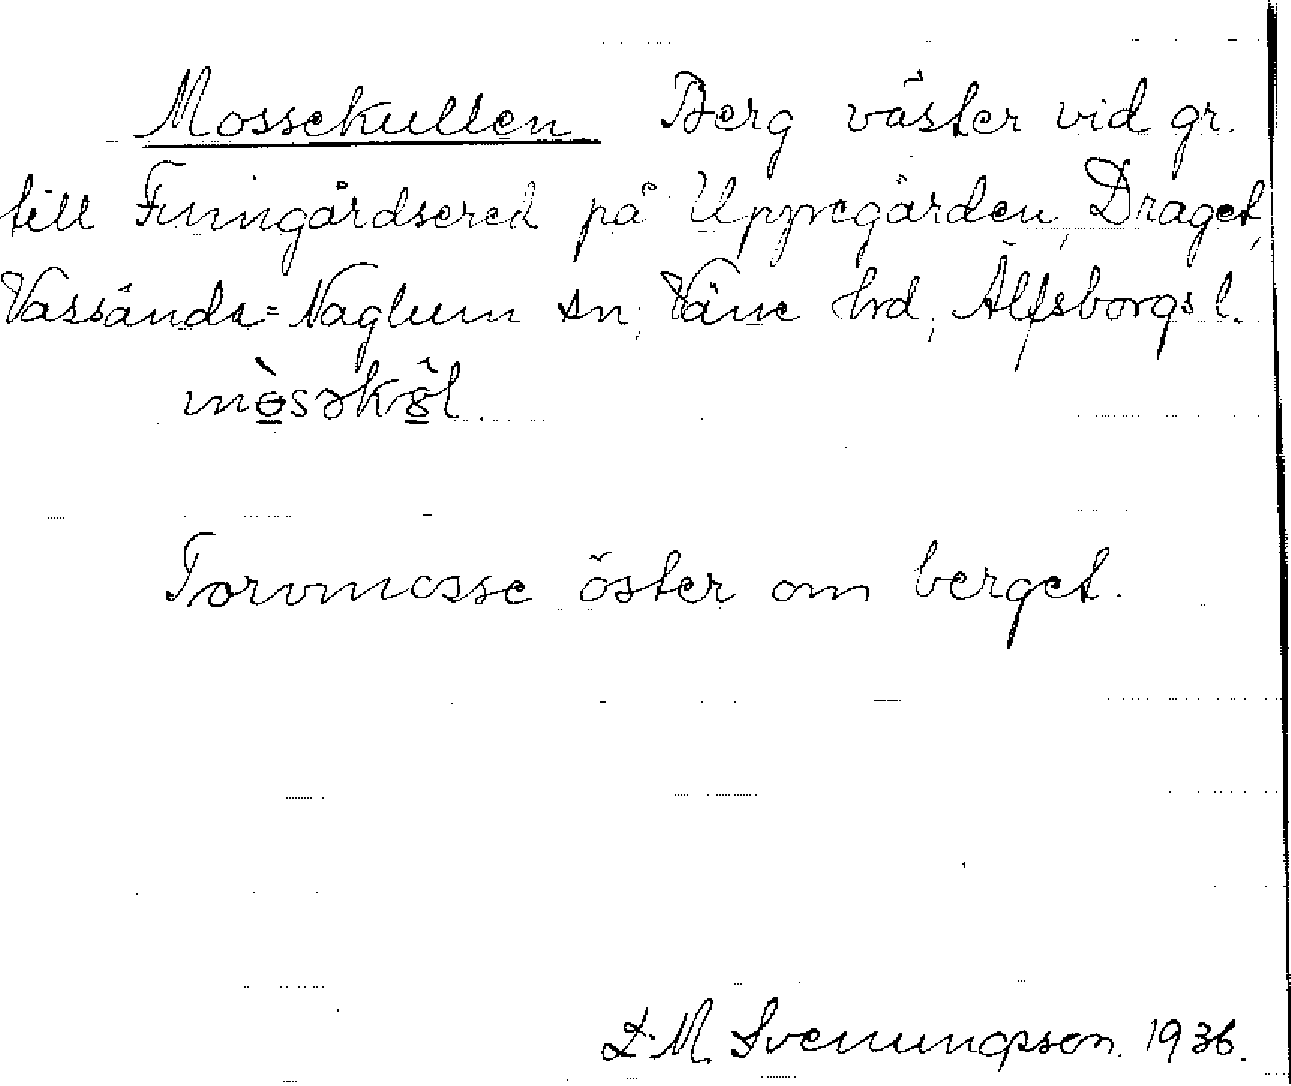 Mossekullen Berg väster vid gr.
till Finngårdsered på Uppegården, Draget,
Vassända-Naglum sn, Väne hrd, Älfsborgs l.
mòsəkŏl.
Torvmosse öster om berget.
L. M. Svenungsson. 1936.